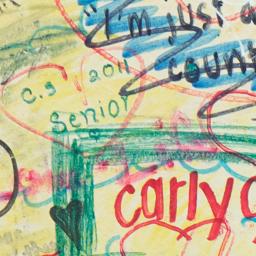 "I'm just a
count
c.s 2011
Senior
carly